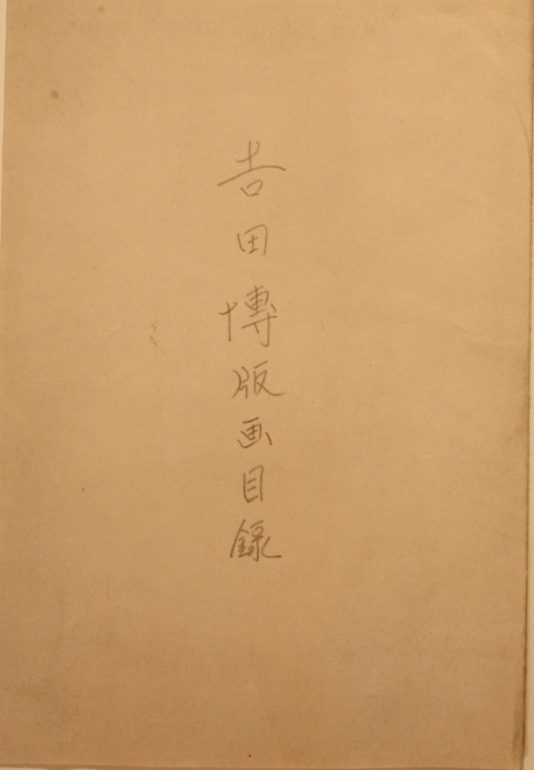 吉田博版画目録